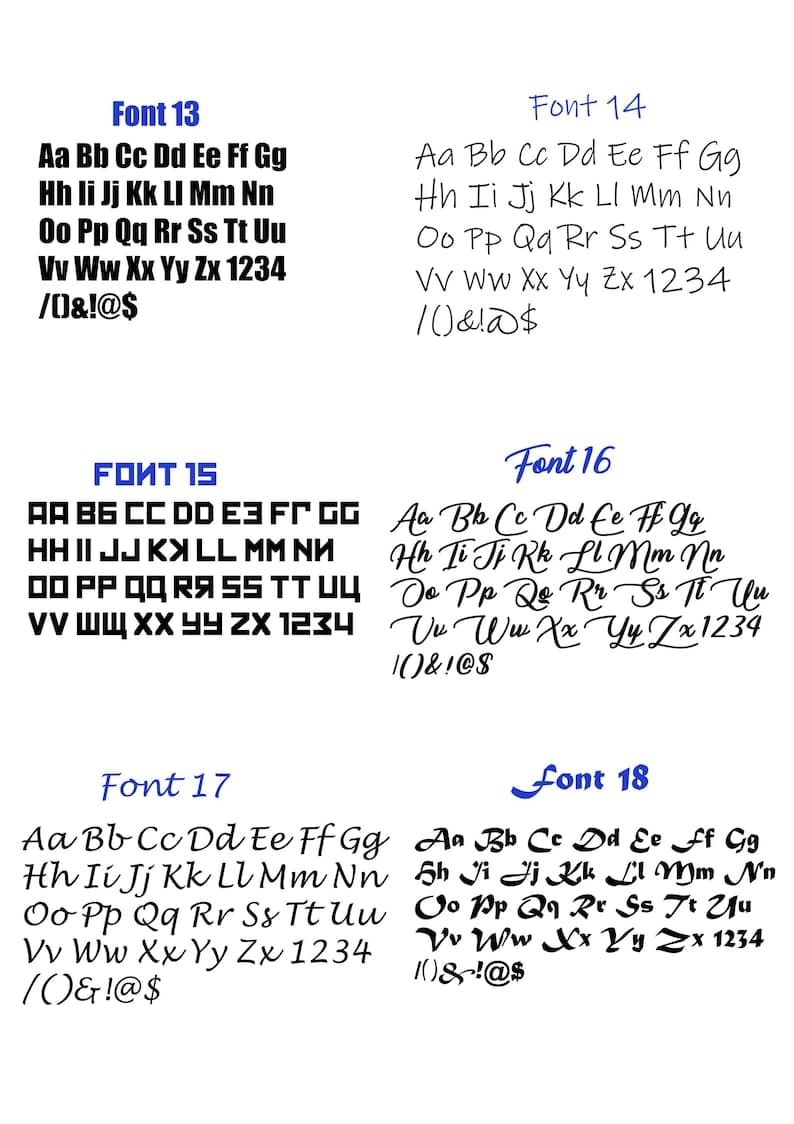 Font 13
Aa Bb Cc Dd Ee Ff Gg
Hh Ii Jj Kk Ll Mm Nn
Oo Pp Qq Rr Ss Tt Uu
Vv Ww Xx Yy Zx 1234
/()&!@$
Font 14
Aa Bb Cc Dd Ee Ff Gg
Hh Ii Jj Kk Ll Mm Nn
Oo Pp Qq Rr Ss Tt Uu
Vv Ww Xx Yy Zx 1234
/()&!@$
FOИT 15
AA BБ CC DD EЭ FГ GG
HH II JJ Kꓘ LL MM NИ
OO PP QQ RЯ SS TT UЦ
VV ШЩ XX УУ ZX 1234
Font 16
Aa Bb Cc Dd Ee Ff Gg
Hh Ii Jj Kk Ll Mm Nn
Oo Pp Qq Rr Ss Tt Uu
Vv Ww Xx Yy Zx 1234
/()&!@$
Font 17
Aa Bb Cc Dd Ee Ff Gg
Hh Ii Jj Kk Ll Mm Nn
Oo Pp Qq Rr Ss Tt Uu
Vv Ww Xx Yy Zx 1234
/()&!@$
Font 18
Aa Bb Cc Dd Ee Ff Gg
Hh Ii Jj Kk Ll Mm Nn
Oo Pp Qq Rr Ss Tt Uu
Vv Ww Xx Yy Zx 1234
/()&!@$